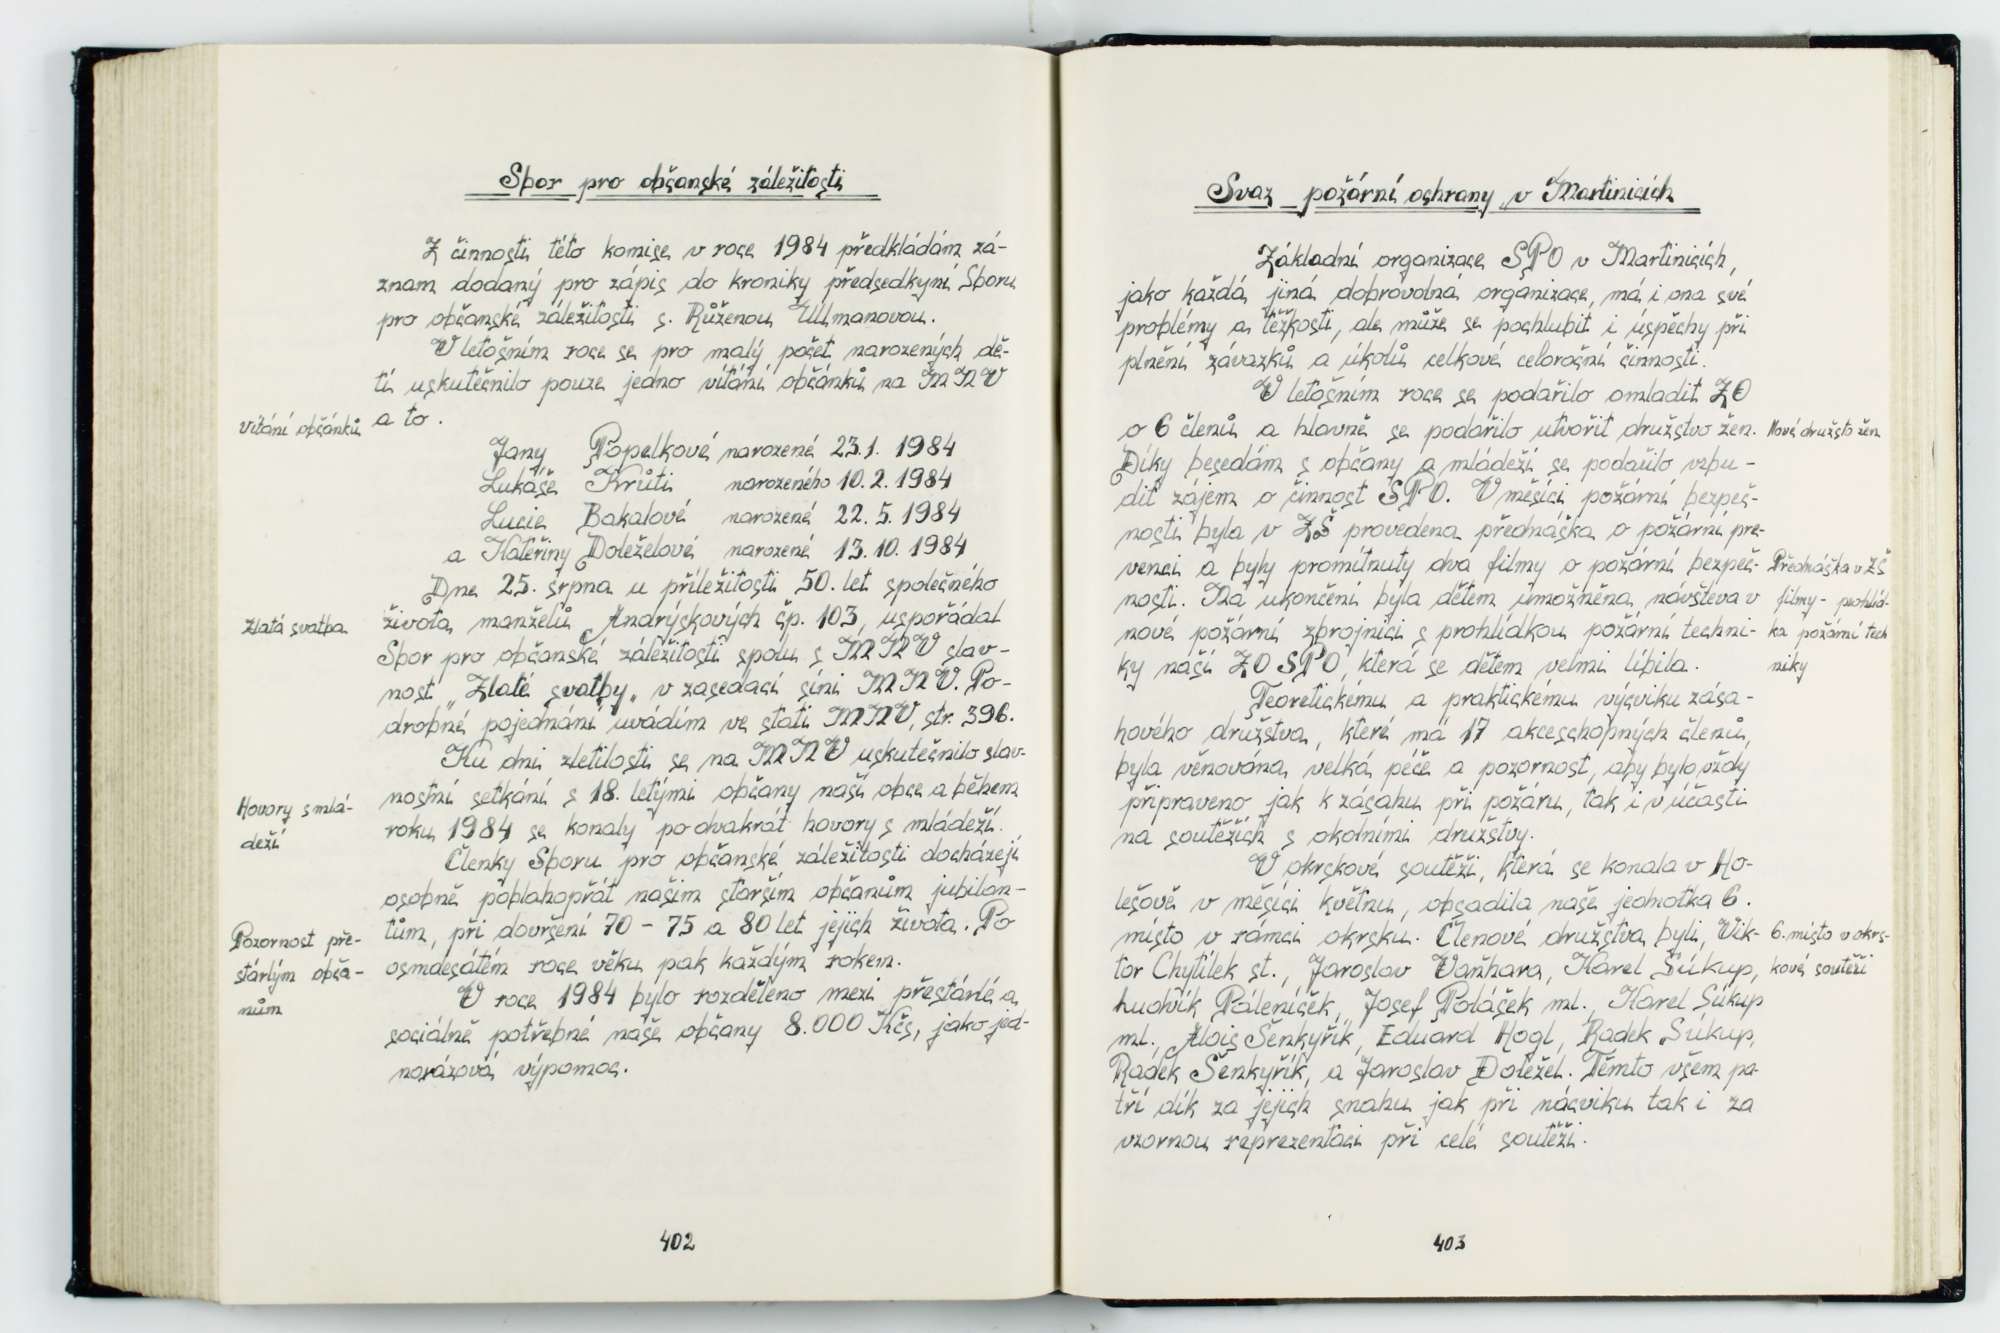 Sbor pro občanské záležitosti
Z činnosti této komise v roce 1984 předkládám zá-
znam dodaný pro zápis do kroniky předsedkyní Sboru
pro občanské záležitosti s. Růženou Ullmanovou.
V letošním roce se pro malý počet narozených dě-
tí uskutečnilo pouze jedno vítání občánků na MNV
a to.
Vítání občánků
Jany Popelkové narozené 23.1. 1984
Lukáše Krůti narozeného 10.2. 1984
Lucie Bakalové narozené 22.5. 1984
a Kateřiny Doleželové narozené 13.10. 1984
Dne 25. srpna u příležitosti 50. let společného
života manželů Andrýskových čp. 103, uspořádal
Zlatá svatba
Sbor pro občanské záležitosti spolu s MNV slav-
nost „Zlaté svatby„ v zasedací síni MNV. Po-
drobné pojednání uvádím ve stati MNV, str. 396.
Ku dni zletilosti se na MNV uskutečnilo slav-
nostní setkání s 18. letými občany naší obce a během
Hovory s mlá-
roku 1984 se konaly po dvakrát hovory s mládeží.
deží
Členky Sboru pro občanské záležitosti docházejí
osobně poblahopřát našim starším občanům jubilan-
tům, při dovršení 70 - 75 a 80 let jejich života. Po
Pozornost pře-
osmdesátém roce věku pak každým rokem.
stárlým obča-
V roce 1984 bylo rozděleno mezi přestárlé a
nům
sociálně potřebné naše občany 8.000 Kčs, jako jed-
norázová výpomoc.
402
Svaz požární ochrany v Martinicích
Základní organizace SPO v Martinicích,
jako každá jiná dobrovolná organizace, má i ona své
problémy a těžkosti, ale může se pochlubit i úspěchy při
plnění závazků a úkolů celkové celoroční činnosti.
V letošním roce se podařilo omladit ZO
o 6 členů a hlavně se podařilo utvořit družstvo žen.
Nové družsto žen
Díky besedám s občany a mládeží se podařilo vzbu-
dit zájem o činnost SPO. V měsíci požární bezpeč-
nosti byla v ZŠ provedena přednáška o požární pre-
venci a byly promítnuty dva filmy o požární bezpeč-
Přednáška v ZŠ
nosti. Na ukončení byla dětem umožněna návštěva v
filmy - prohlíd-
nové požární zbrojnici s prohlídkou požární techni-
ka požární tech
ky naší ZO SPO, která se dětem velmi líbila.
niky
Teoretickému a praktickému výcviku zása-
hového družstva, které má 17 akceschopných členů,
byla věnována velká péče a pozornost, aby bylo vždy
připraveno jak k zásahu při požáru, tak i v účasti
na soutěžích s okolními družstvy.
V okrskové soutěži, která se konala v Ho-
lešově v měsíci květnu, obsadila naše jednotka 6.
místo v rámci okrsku. Členové družstva byli, Vik-
6. místo v okrs-
tor Chytílek st., Jaroslav Vaňhara, Karel Súkup,
kové soutěži
Ludvík Páleníček, Josef Polášek ml., Karel Súkup
ml., Alois Šenkyřík, Eduard Hogl, Radek Súkup,
Radek Šenkyřík, a Jaroslav Doležel. Těmto všem pa-
tří dík za jejich snahu jak při nácviku tak i za
vzornou reprezentaci při celé soutěži.
403